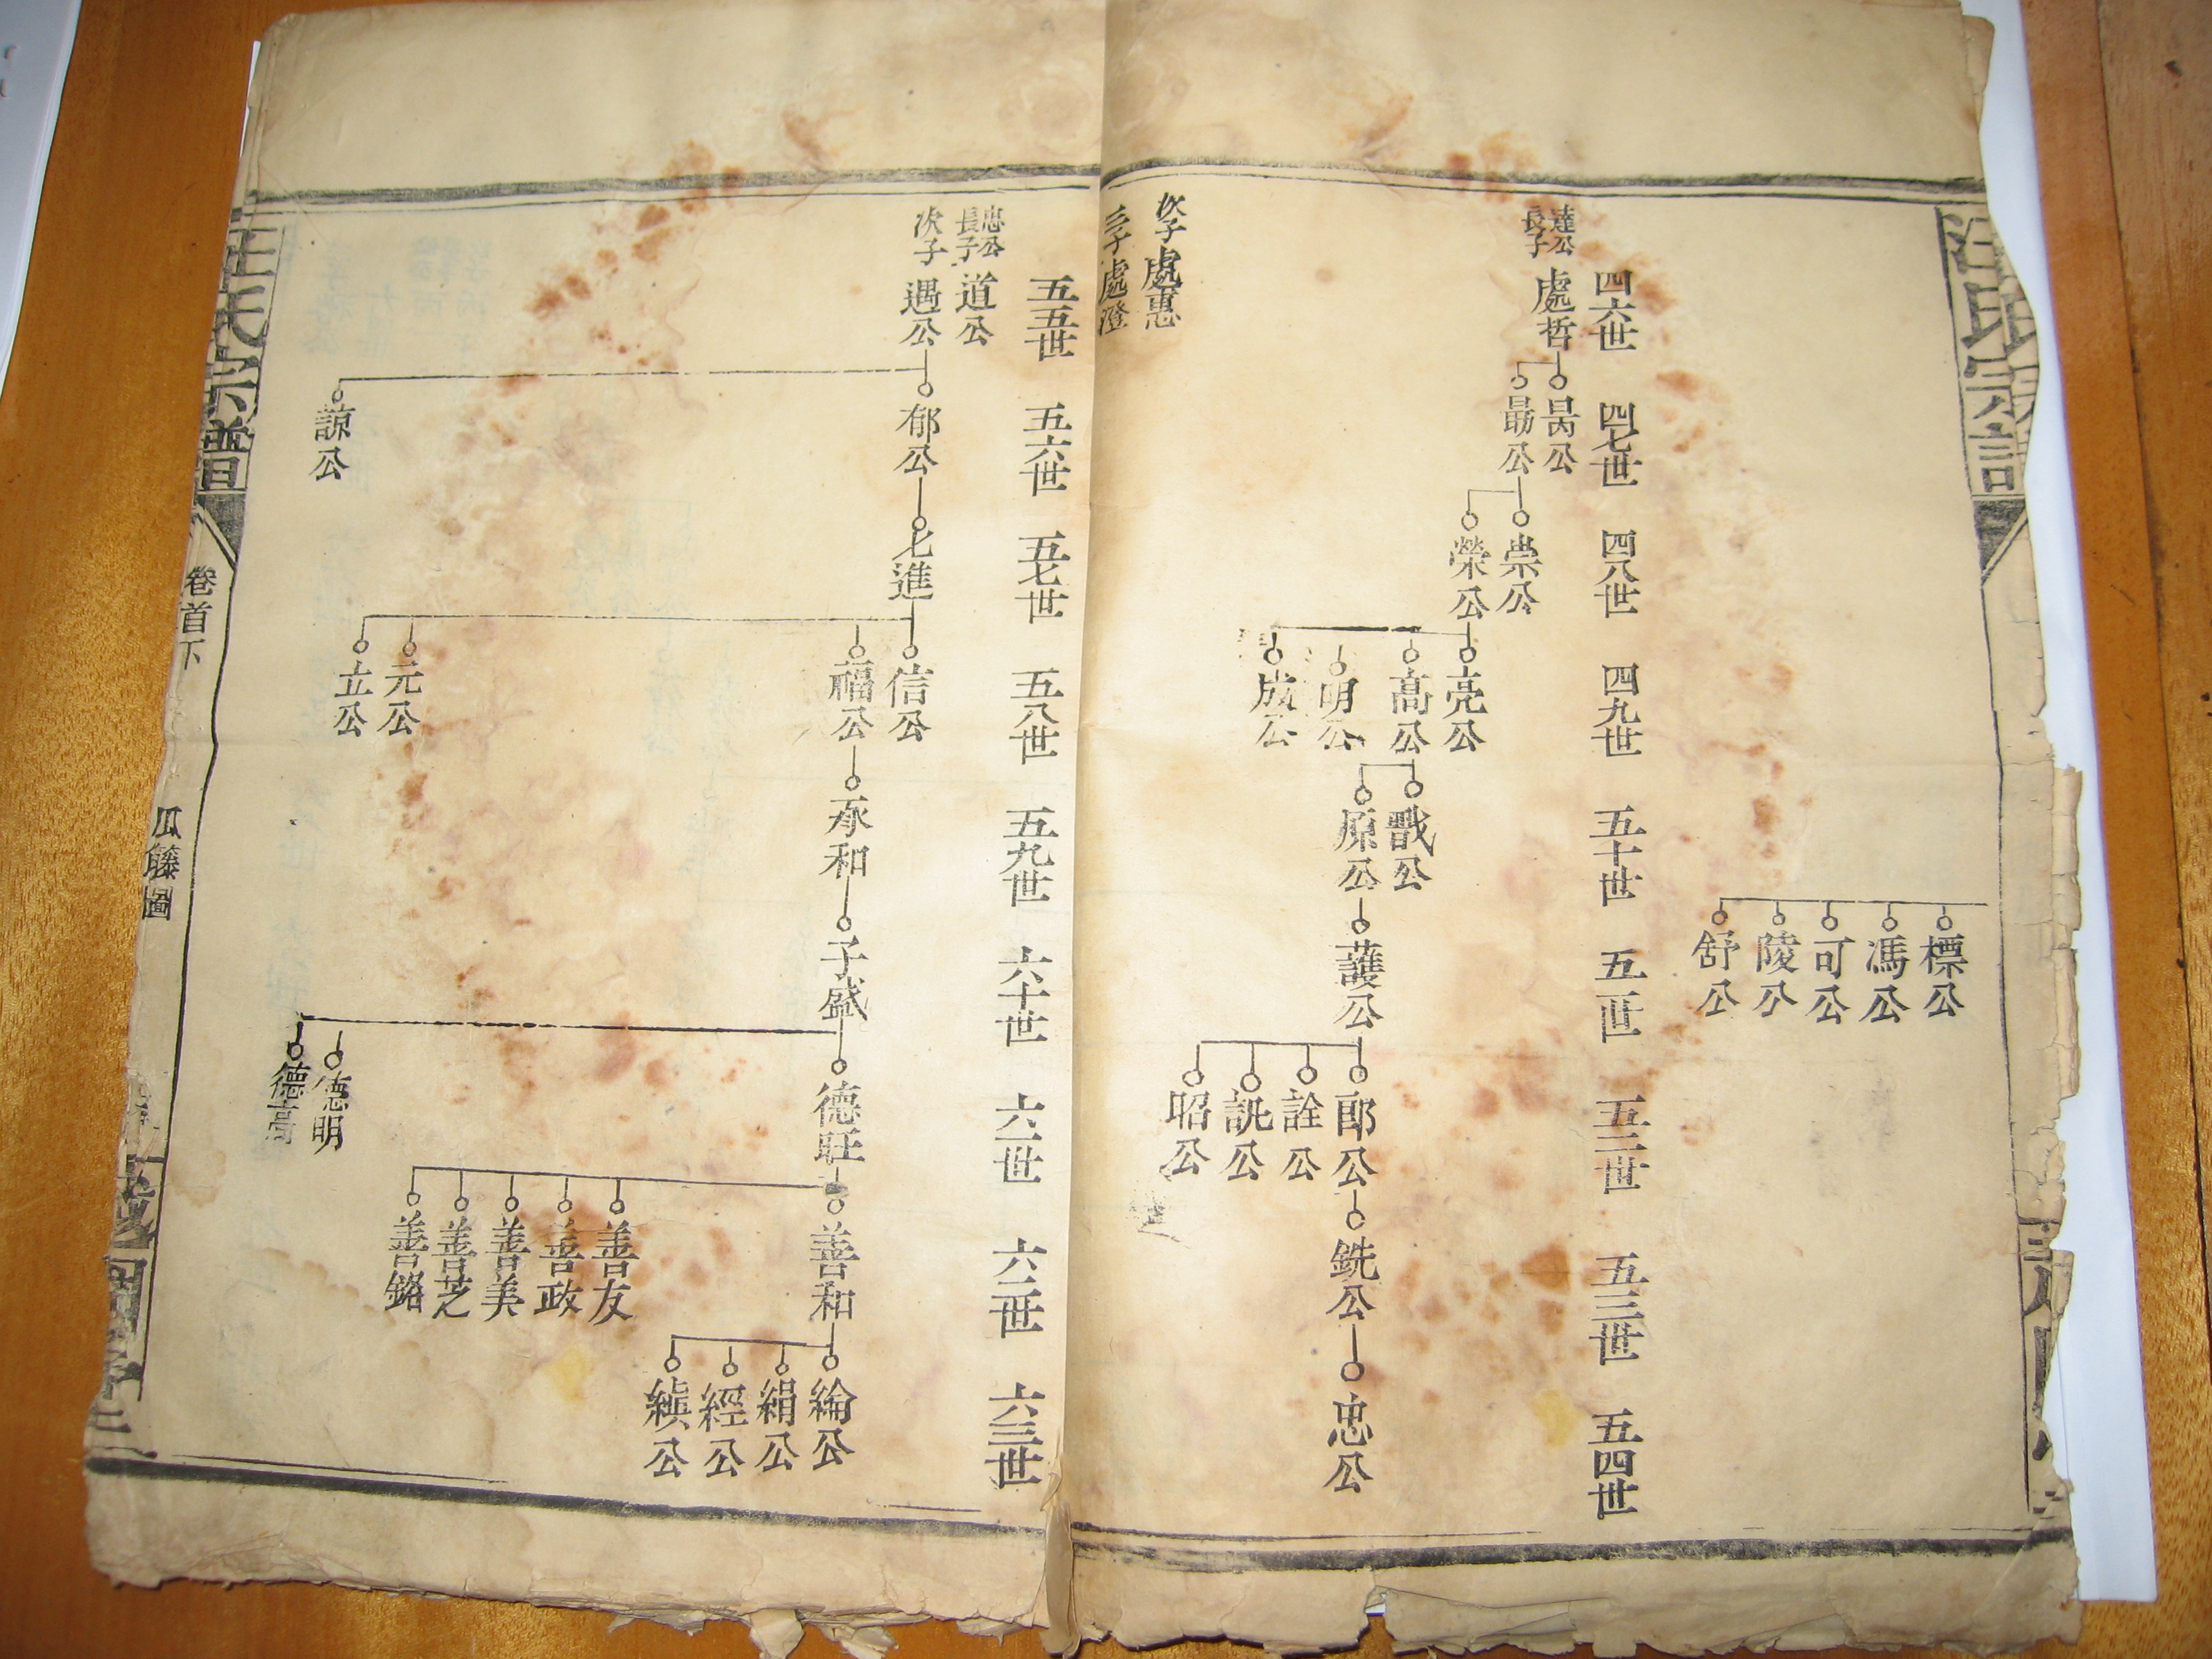 汪氏宗譜
標公
馮公
可公
陵公
舒公
四六世
四七世
四八世
四九世
五十世
五一世
五二世
五三世
五四世
達公
長子
處哲
昺公
勗公
崇公
榮公
亮公
高公
明公
成公
戩公
原公
護公
郎公
詮公
誂公
昭公
銑公
忠公
次子處惠
三子處澄
五五世
五六世
五七世
五八世
五九世
六十世
六一世
六二世
六三世
忠公
長子
道公
次子
遇公
郁公
諒公
七進
信公
福公
元公
立公
承和
子盛
德旺
德明
德高
善和
善友
善政
善美
善芝
善銘
綸公
絹公
經公
縝公
汪氏宗譜
卷首下
瓜籐圖